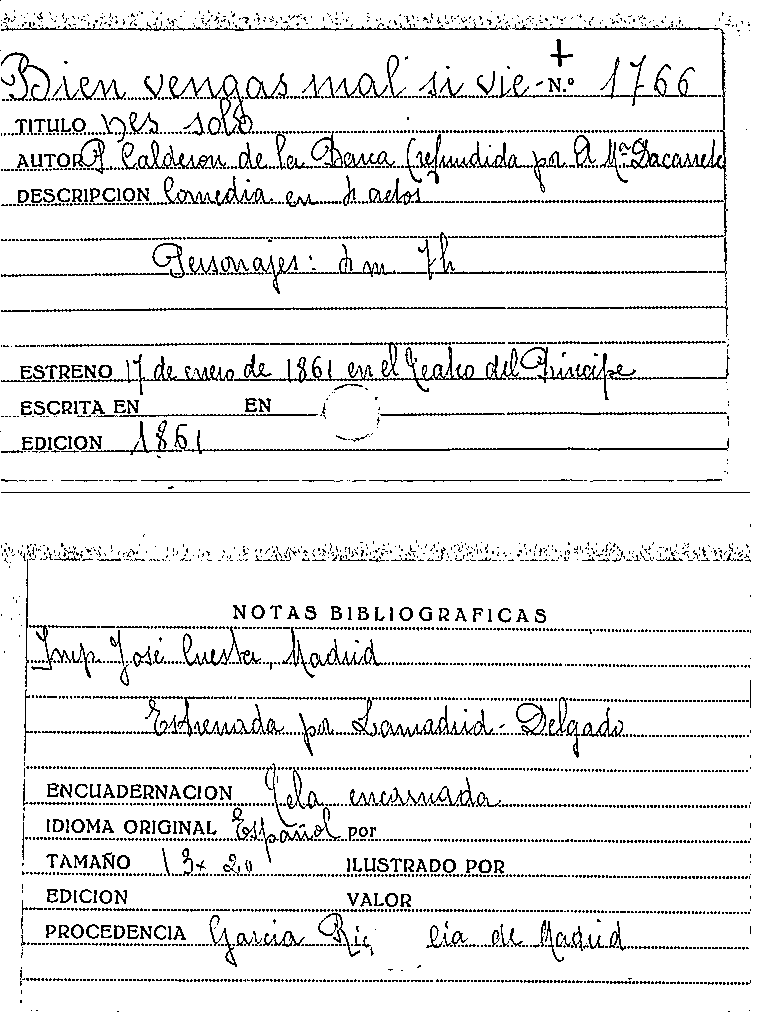 Bien vengas mal si vie- N.º 1766
TITULO nes solo
AUTOR P Calderon de la Barca (refundida por A Mª Dacarrete
DESCRIPCION Comedia en actos
Personajes: m 7h
ESTRENO 17 de enero de 1861 en el Teatro del Principe
ESCRITA EN EN
EDICION 1861
NOTAS BIBLIOGRAFICAS
Imp José Cuesta, Madrid
Estrenada por Lamadrid - Delgado
ENCUADERNACION Tela encarnada
IDIOMA ORIGINAL Español por
TAMAÑO 13x20 ILUSTRADO POR
EDICION VALOR
PROCEDENCIA Garcia Ric cia de Madrid